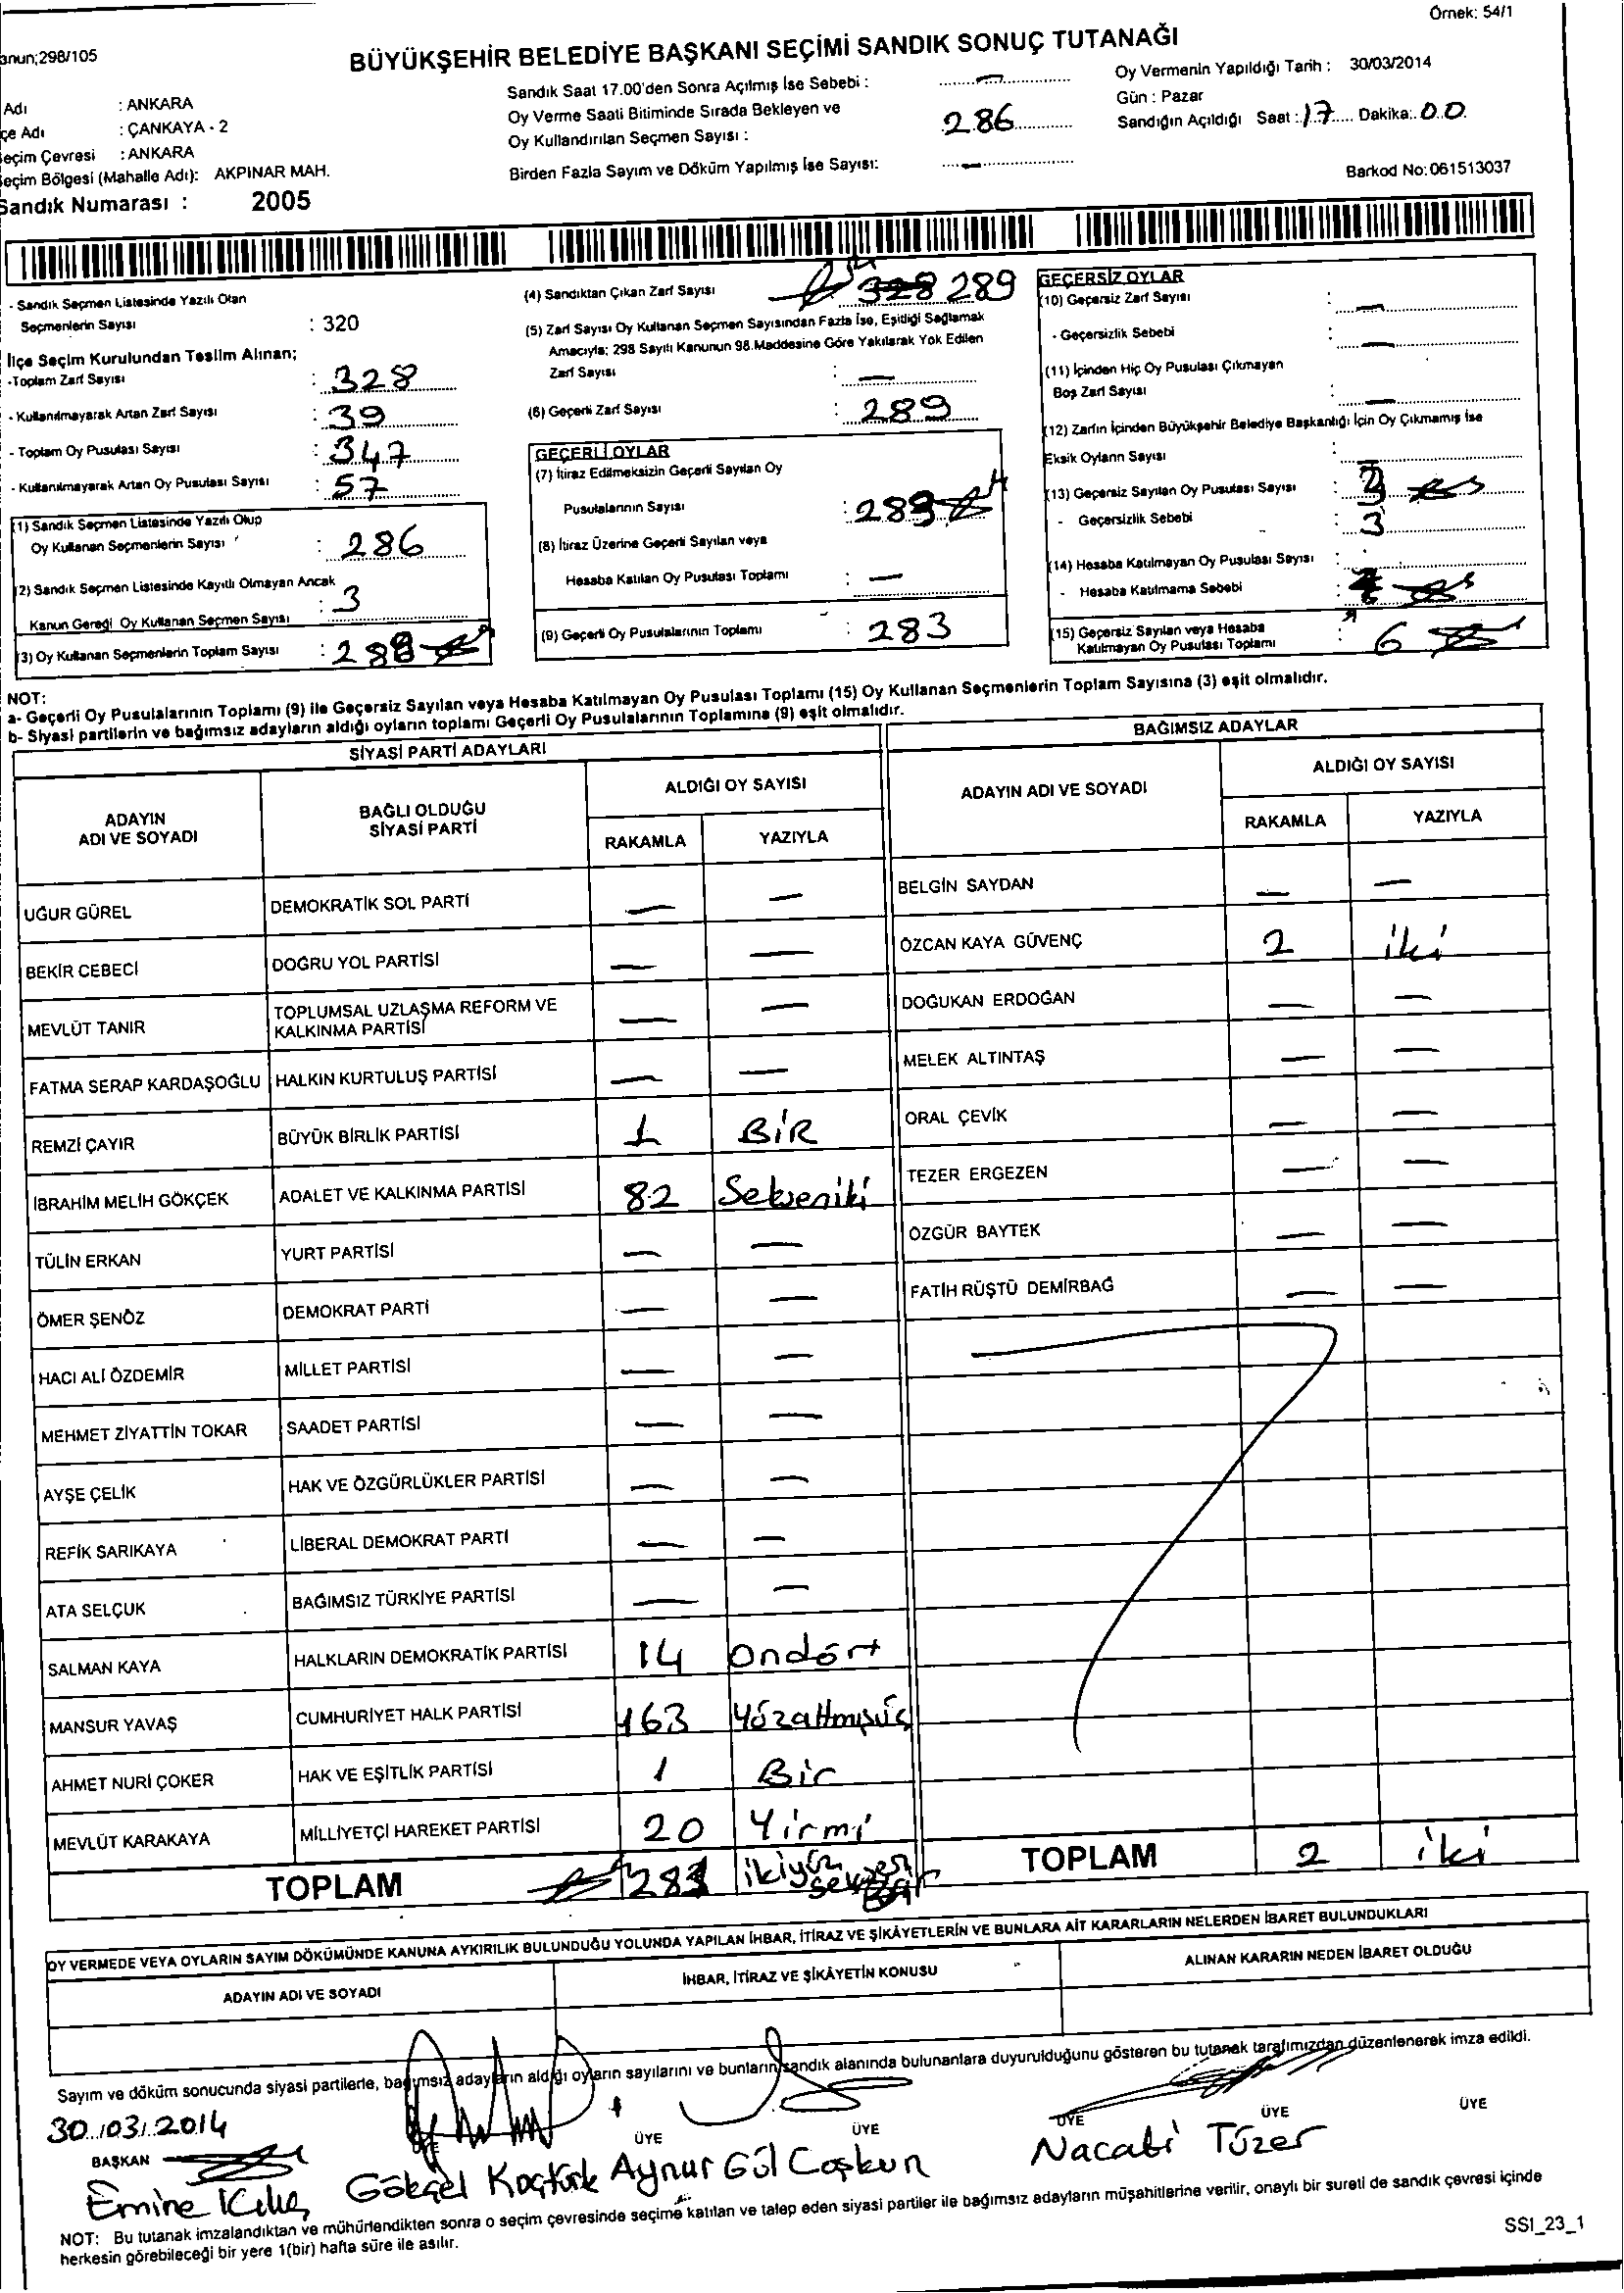 Örnek: 54/1
anun;298/105
BÜYÜKŞEHİR BELEDİYE BAŞKANI SEÇİMİ SANDIK SONUÇ TUTANAĞI
Adı : ANKARA
çe Adı : ÇANKAYA - 2
eçim Çevresi : ANKARA
eçim Bölgesi (Mahalle Adı): AKPINAR MAH.
Sandık Numarası : 2005
Sandık Saat 17.00'den Sonra Açılmış İse Sebebi : —
Oy Verme Saati Bitiminde Sırada Bekleyen ve
Oy Kullandırılan Seçmen Sayısı : 286
Birden Fazla Sayım ve Döküm Yapılmış İse Sayısı: —
Oy Vermenin Yapıldığı Tarih : 30/03/2014
Gün : Pazar
Sandığın Açıldığı Saat : 17 Dakika: 00
Barkod No: 061513037
- Sandık Seçmen Listesinde Yazılı Olan
Seçmenlerin Sayısı : 320
İlçe Seçim Kurulundan Teslim Alınan;
-Toplam Zarf Sayısı : 328
- Kullanılmayarak Artan Zarf Sayısı : 39
- Toplam Oy Pusulası Sayısı : 347
- Kullanılmayarak Artan Oy Pusulası Sayısı : 57
(1) Sandık Seçmen Listesinde Yazılı Olup
Oy Kullanan Seçmenlerin Sayısı : 286
(2) Sandık Seçmen Listesinde Kayıtlı Olmayan Ancak
Kanun Gereği Oy Kullanan Seçmen Sayısı : 3
(3) Oy Kullanan Seçmenlerin Toplam Sayısı :
(4) Sandıktan Çıkan Zarf Sayısı 328 289
(5) Zarf Sayısı Oy Kullanan Seçmen Sayısından Fazla İse, Eşitliği Sağlamak
Amacıyla; 298 Sayılı Kanunun 98.Maddesine Göre Yakılarak Yok Edilen
Zarf Sayısı : —
(6) Geçerli Zarf Sayısı : 289
GEÇERLİ OYLAR
(7) İtiraz Edilmeksizin Geçerli Sayılan Oy
Pusulalarının Sayısı :
(8) İtiraz Üzerine Geçerli Sayılan veya
Hesaba Katılan Oy Pusulası Toplamı : —
(9) Geçerli Oy Pusulalarının Toplamı : 283
GEÇERSİZ OYLAR
(10) Geçersiz Zarf Sayısı : —
- Geçersizlik Sebebi : —
(11) İçinden Hiç Oy Pusulası Çıkmayan
Boş Zarf Sayısı : —
(12) Zarfın İçinden Büyükşehir Belediye Başkanlığı İçin Oy Çıkmamış İse
Eksik Oyların Sayısı :
(13) Geçersiz Sayılan Oy Pusulası Sayısı :
- Geçersizlik Sebebi : 3
(14) Hesaba Katılmayan Oy Pusulası Sayısı :
- Hesaba Katılmama Sebebi :
(15) Geçersiz Sayılan veya Hesaba
Katılmayan Oy Pusulası Toplamı : 6
NOT:
a- Geçerli Oy Pusulalarının Toplamı (9) ile Geçersiz Sayılan veya Hesaba Katılmayan Oy Pusulası Toplamı (15) Oy Kullanan Seçmenlerin Toplam Sayısına (3) eşit olmalıdır.
b- Siyasi partilerin ve bağımsız adayların aldığı oyların toplamı Geçerli Oy Pusulalarının Toplamına (9) eşit olmalıdır.
SİYASİ PARTİ ADAYLARI
ADAYIN ADI VE SOYADI BAĞLI OLDUĞU SİYASİ PARTİ ALDIĞI OY SAYISI
RAKAMLA YAZIYLA
UĞUR GÜREL DEMOKRATİK SOL PARTİ — —
BEKİR CEBECİ DOĞRU YOL PARTİSİ — —
MEVLÜT TANIR TOPLUMSAL UZLAŞMA REFORM VE KALKINMA PARTİSİ — —
FATMA SERAP KARDAŞOĞLU HALKIN KURTULUŞ PARTİSİ — —
REMZİ ÇAYIR BÜYÜK BİRLİK PARTİSİ 1 BİR
İBRAHİM MELİH GÖKÇEK ADALET VE KALKINMA PARTİSİ 82 Sekseniki
TÜLİN ERKAN YURT PARTİSİ — —
ÖMER ŞENÖZ DEMOKRAT PARTİ — —
HACI ALİ ÖZDEMİR MİLLET PARTİSİ — —
MEHMET ZİYATTİN TOKAR SAADET PARTİSİ — —
AYŞE ÇELİK HAK VE ÖZGÜRLÜKLER PARTİSİ — —
REFİK SARIKAYA LİBERAL DEMOKRAT PARTİ — —
ATA SELÇUK BAĞIMSIZ TÜRKİYE PARTİSİ — —
SALMAN KAYA HALKLARIN DEMOKRATİK PARTİSİ 14 Ondört
MANSUR YAVAŞ CUMHURİYET HALK PARTİSİ 163 Yüzaltmışüç
AHMET NURİ ÇOKER HAK VE EŞİTLİK PARTİSİ 1 Bir
MEVLÜT KARAKAYA MİLLİYETÇİ HAREKET PARTİSİ 20 Yirmi
TOPLAM ikiyüz seksen
BAĞIMSIZ ADAYLAR
ADAYIN ADI VE SOYADI ALDIĞI OY SAYISI
RAKAMLA YAZIYLA
BELGİN SAYDAN — —
ÖZCAN KAYA GÜVENÇ 2 iki
DOĞUKAN ERDOĞAN — —
MELEK ALTINTAŞ — —
ORAL ÇEVİK — —
TEZER ERGEZEN — —
ÖZGÜR BAYTEK — —
FATİH RÜŞTÜ DEMİRBAĞ — —
TOPLAM 2 iki
OY VERMEDE VEYA OYLARIN SAYIM DÖKÜMÜNDE KANUNA AYKIRILIK BULUNDUĞU YOLUNDA YAPILAN İHBAR, İTİRAZ VE ŞİKÂYETLERİN VE BUNLARA AİT KARARLARIN NELERDEN İBARET BULUNDUKLARI
ADAYIN ADI VE SOYADI İHBAR, İTİRAZ VE ŞİKÂYETİN KONUSU ALINAN KARARIN NEDEN İBARET OLDUĞU
Sayım ve döküm sonucunda siyasi partilerle, bağımsız adayların aldığı oyların sayılarını ve bunların sandık alanında bulunanlara duyurulduğunu gösteren bu tutanak tarafımızdan düzenlenerek imza edildi.
30/03/2014
BAŞKAN ÜYE ÜYE ÜYE ÜYE ÜYE
Emine Kılıç Gökçel Koçtürk Aynur Gül Coşkun Nacati Tüzer
NOT: Bu tutanak imzalandıktan ve mühürlendikten sonra o seçim çevresinde seçime katılan ve talep eden siyasi partiler ile bağımsız adayların müşahitlerine verilir, onaylı bir sureti de sandık çevresi içinde
herkesin görebileceği bir yere 1(bir) hafta süre ile asılır.
SSI_23_1